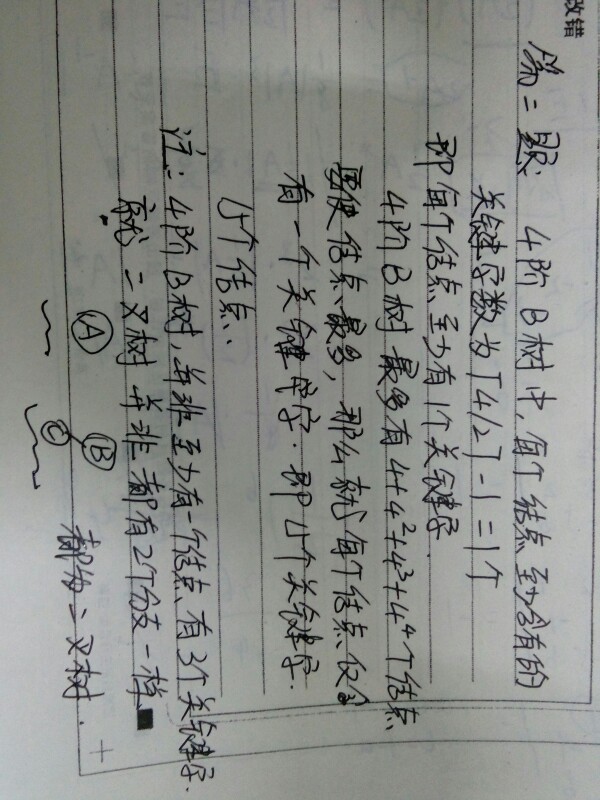 改错
第二题: 4阶B树中,每个结点至少含有的
关键字数为⌈4/2⌉-1=1个
即每个结点至少有1个关键字.
4阶B树最多有4+4²+4³+4⁴个结点
要使结点最多,那么就每个结点仅含
有一个关键字.即15个关键字.
15个结点.
注:4阶B树,并非至少有一个结点有3个关键字.
就二叉树并非都有2个分支一样.
A
B
C
都为二叉树.